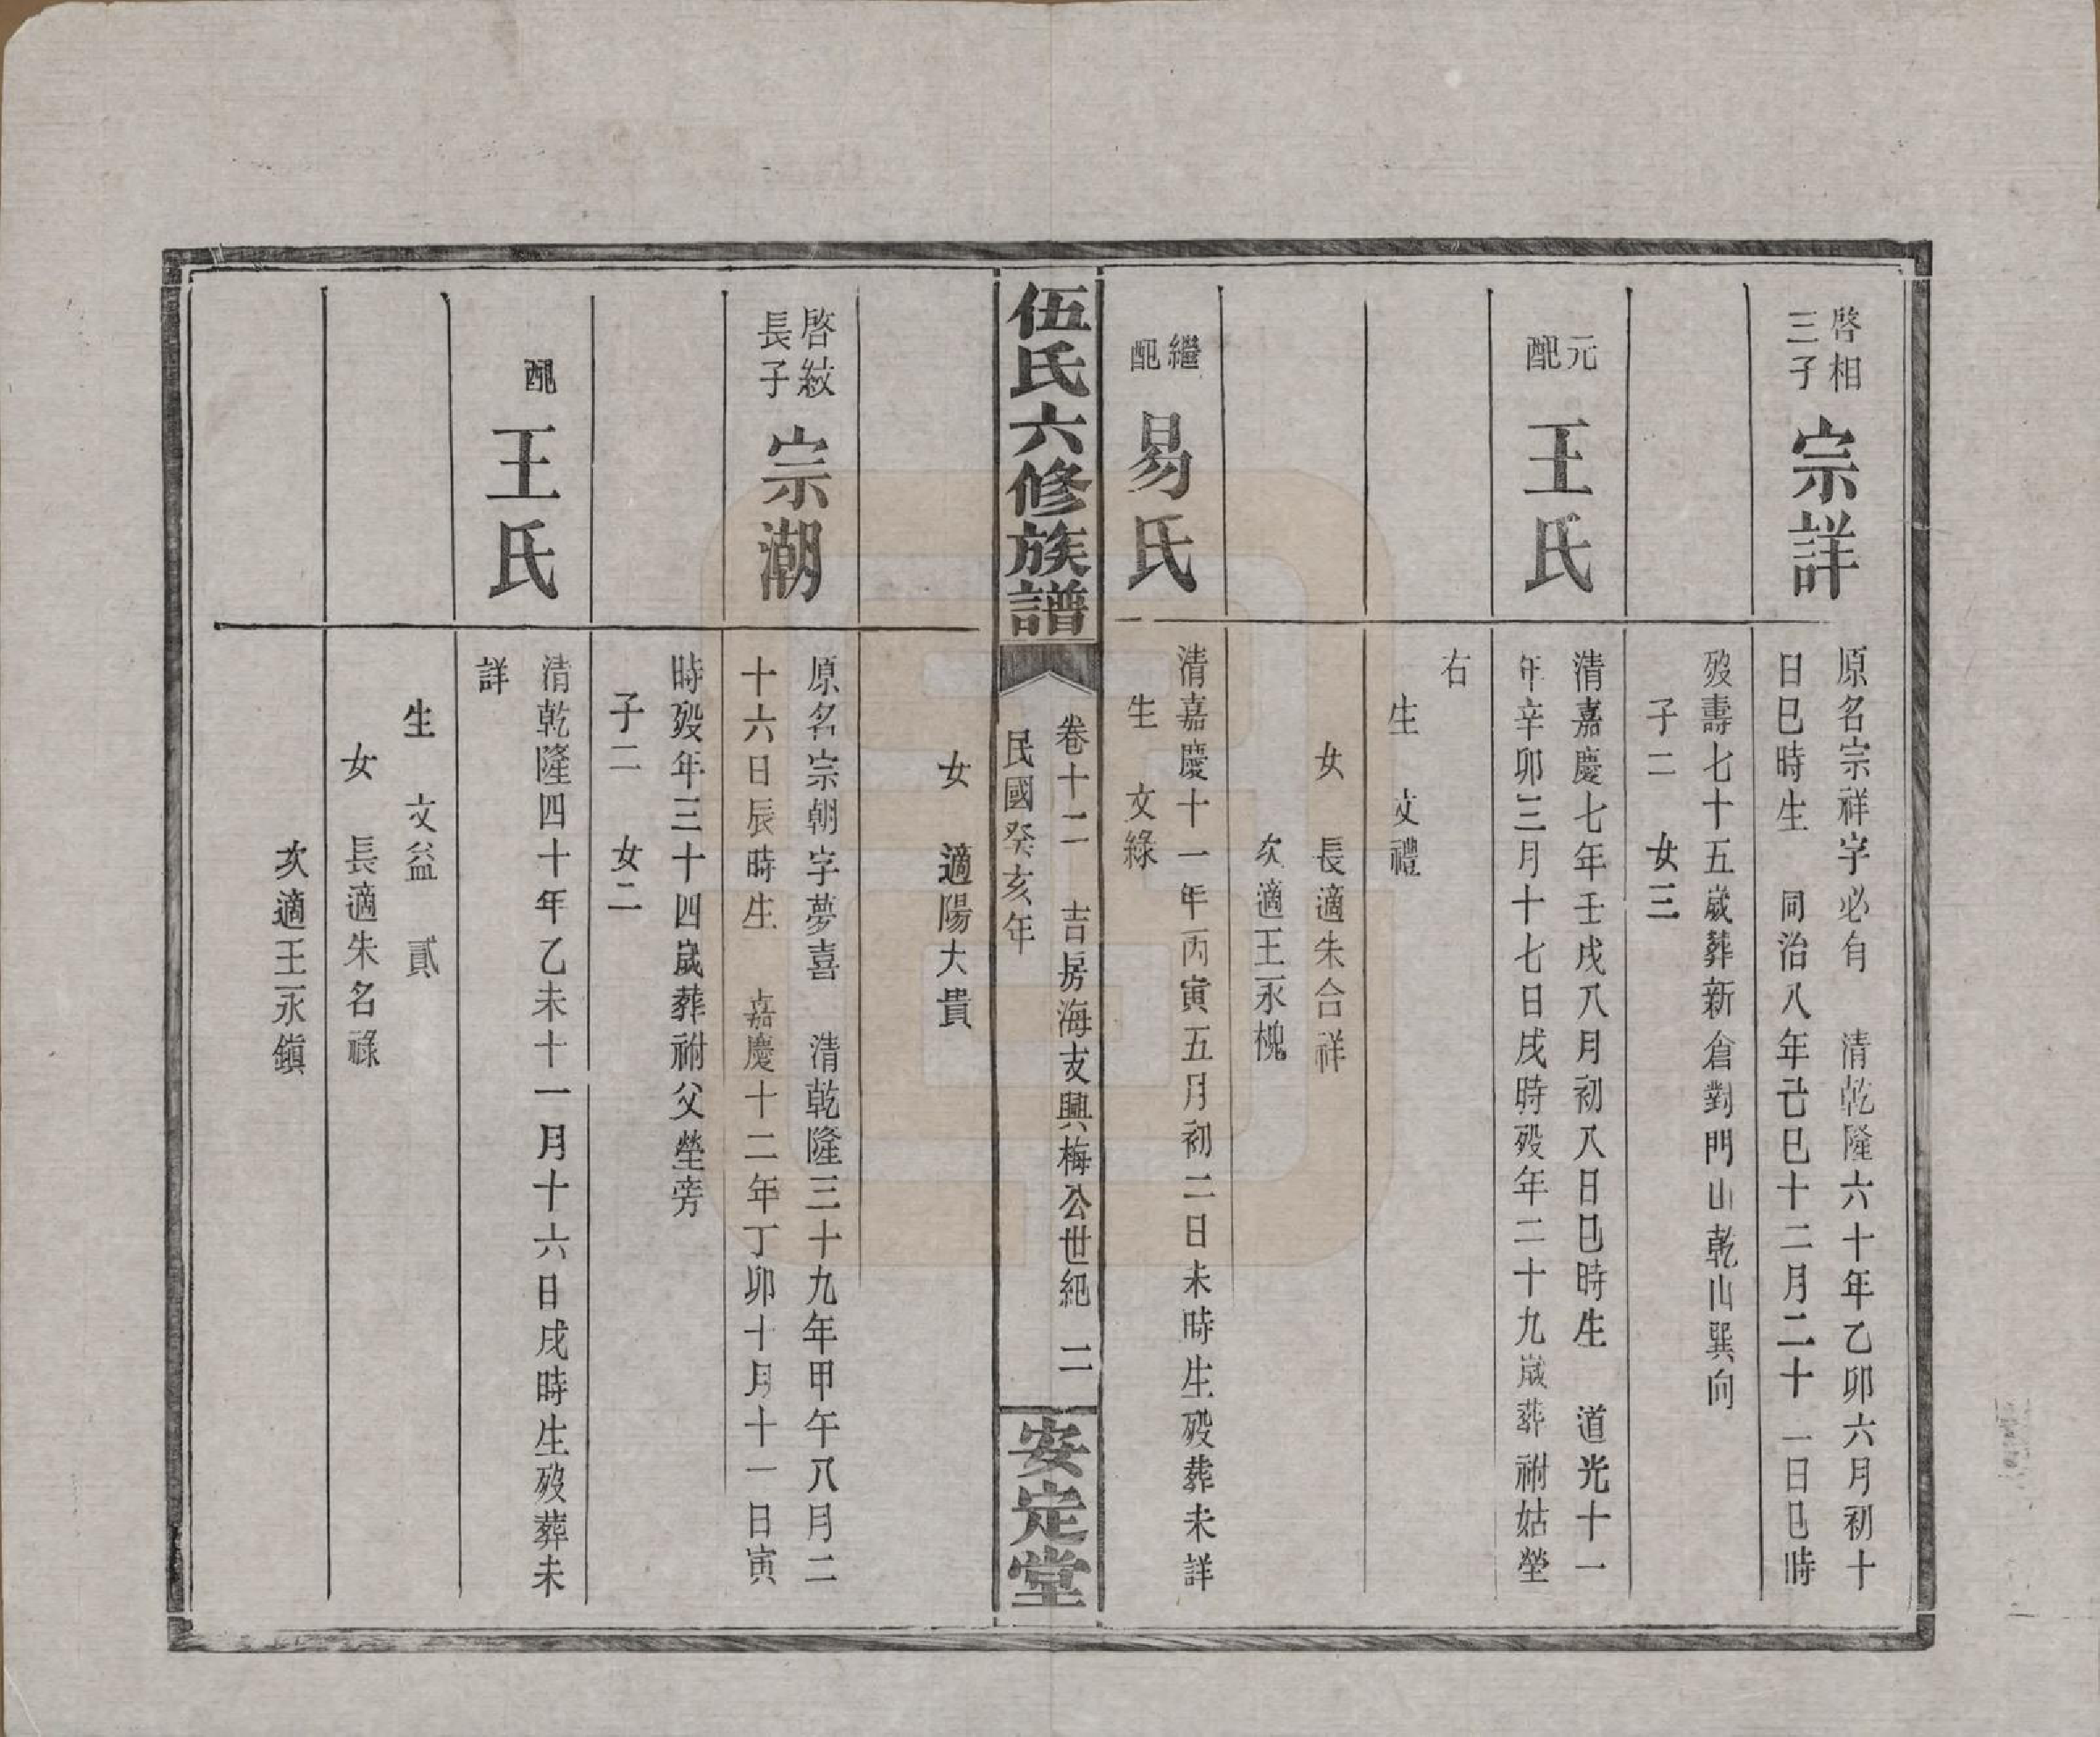 啓相
三子
宗詳
原名宗祥字必有　清乾隆六十年乙卯六月初十
日巳時生　同治八年己巳十二月二十一日巳時
歿壽七十五歲葬新倉對門山乾山巽向
子二　女三
元
配
王氏
清嘉慶七年壬戌八月初八日巳時生　道光十一
年辛卯三月十七日戌時歿年二十九歲葬祔姑塋
右
生　文禮
女　長適朱合祥
次適王永槐
繼
配
易氏
清嘉慶十一年丙寅五月初二日未時生歿葬未詳
生　文綠
伍氏六修族譜
卷十二　吉房海支興梅公世紀　二
民國癸亥年
安定堂
女　適陽大貴
啓紋
長子
宗潮
原名宗朝字夢喜　清乾隆三十九年甲午八月二
十六日辰時生　嘉慶十二年丁卯十月十一日寅
時歿年三十四歲葬祔父塋旁
子二　女二
配
王氏
清乾隆四十年乙未十一月十六日戌時生歿葬未
詳
生　文益　貳
女　長適朱名祿
次適王永鎮